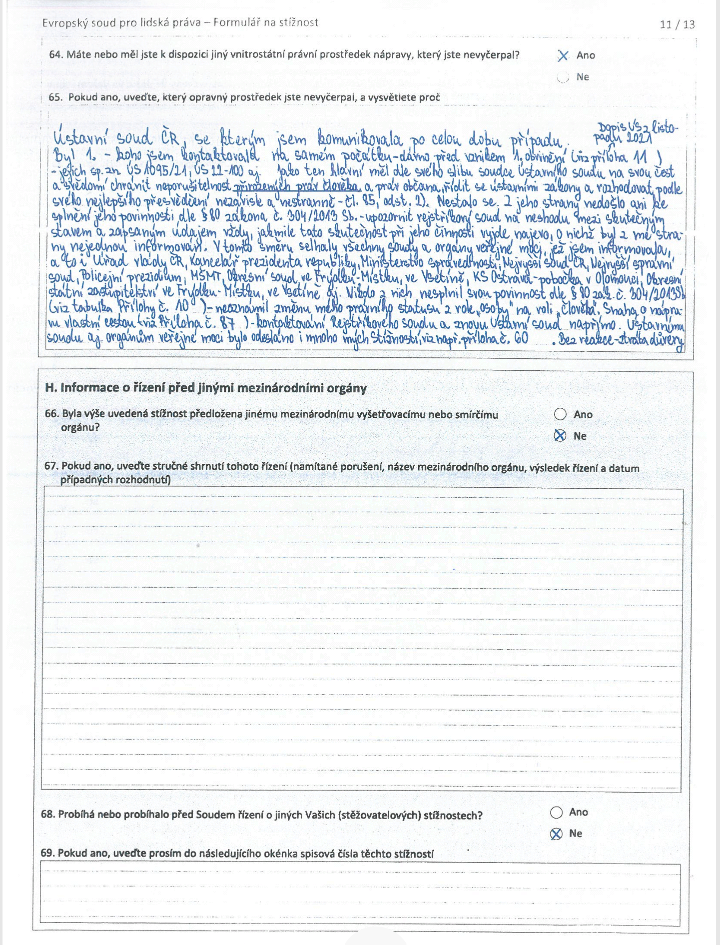 Evropský soud pro lidská práva – Formulář na stížnost 11 / 13
64. Máte nebo měl jste k dispozici jiný vnitrostátní právní prostředek nápravy, který jste nevyčerpal? X Ano
Ne
65. Pokud ano, uveďte, který opravný prostředek jste nevyčerpal, a vysvětlete proč
Dopis ÚS z listo-
padu 2021
Ústavní soud ČR, se kterým jsem komunikovala po celou dobu případu.
Byl 1. - koho jsem kontaktovala na samém počátku - dávno před vznikem 1. obvinění (viz příloha 11)
- jejich sp. zn. ÚS 1095/21, ÚS 22-100 aj. Jako ten hlavní měl dle svého slibu soudce Ústavního soudu na svou čest
a svědomí chránit neporušitelnost přirozených práv člověka a práv občana, řídit se ústavními zákony a rozhodovat podle
svého nejlepšího přesvědčení nezávisle a nestranně - čl. 85, odst. 2). Nestalo se. Z jeho strany nedošlo ani ke
splnění jeho povinnosti dle § 80 zákona č. 304/2013 Sb. - upozornit rejstříkový soud na neshodu mezi skutečným
stavem a zapsaným údajem vždy, jakmile tato skutečnost při jeho činnosti vyjde najevo, o nichž byl z mé stra-
ny nejednou informován. V tomto směru selhaly všechny soudy a orgány veřejné moci, jež jsem informovala,
a to i Úřad vlády ČR, Kancelář prezidenta republiky, Ministerstvo spravedlnosti, Nejvyšší soud ČR, Nejvyšší správní
soud, Policejní prezidium, MŠMT, Okresní soud ve Frýdku-Místku, ve Vsetíně, KS Ostrava - pobočka v Olomouci, Okresní
státní zastupitelství ve Frýdku-Místku, ve Vsetíně aj. Nikdo z nich nesplnil svou povinnost dle § 80 zák. č. 304/2013 Sb
(viz tabulka Přílohy č. 10) - neoznámil změnu mého právního statusu z role „osoby" na roli „člověka". Snaha o nápra-
vu vlastní cestou (viz Příloha č. 87) - kontaktování Rejstříkového soudu a znovu Ústavní soud napřímo. Ústavnímu
soudu a j. orgánům veřejné moci bylo odesláno i mnoho mých Stížností, viz např. příloha č. 60 . Bez reakce - ztráta důvěry
H. Informace o řízení před jinými mezinárodními orgány
66. Byla výše uvedená stížnost předložena jinému mezinárodnímu vyšetřovacímu nebo smírčímu Ano
orgánu? X Ne
67. Pokud ano, uveďte stručné shrnutí tohoto řízení (namítané porušení, název mezinárodního orgánu, výsledek řízení a datum
případných rozhodnutí)
68. Probíhá nebo probíhalo před Soudem řízení o jiných Vašich (stěžovatelových) stížnostech? Ano
X Ne
69. Pokud ano, uveďte prosím do následujícího okénka spisová čísla těchto stížností